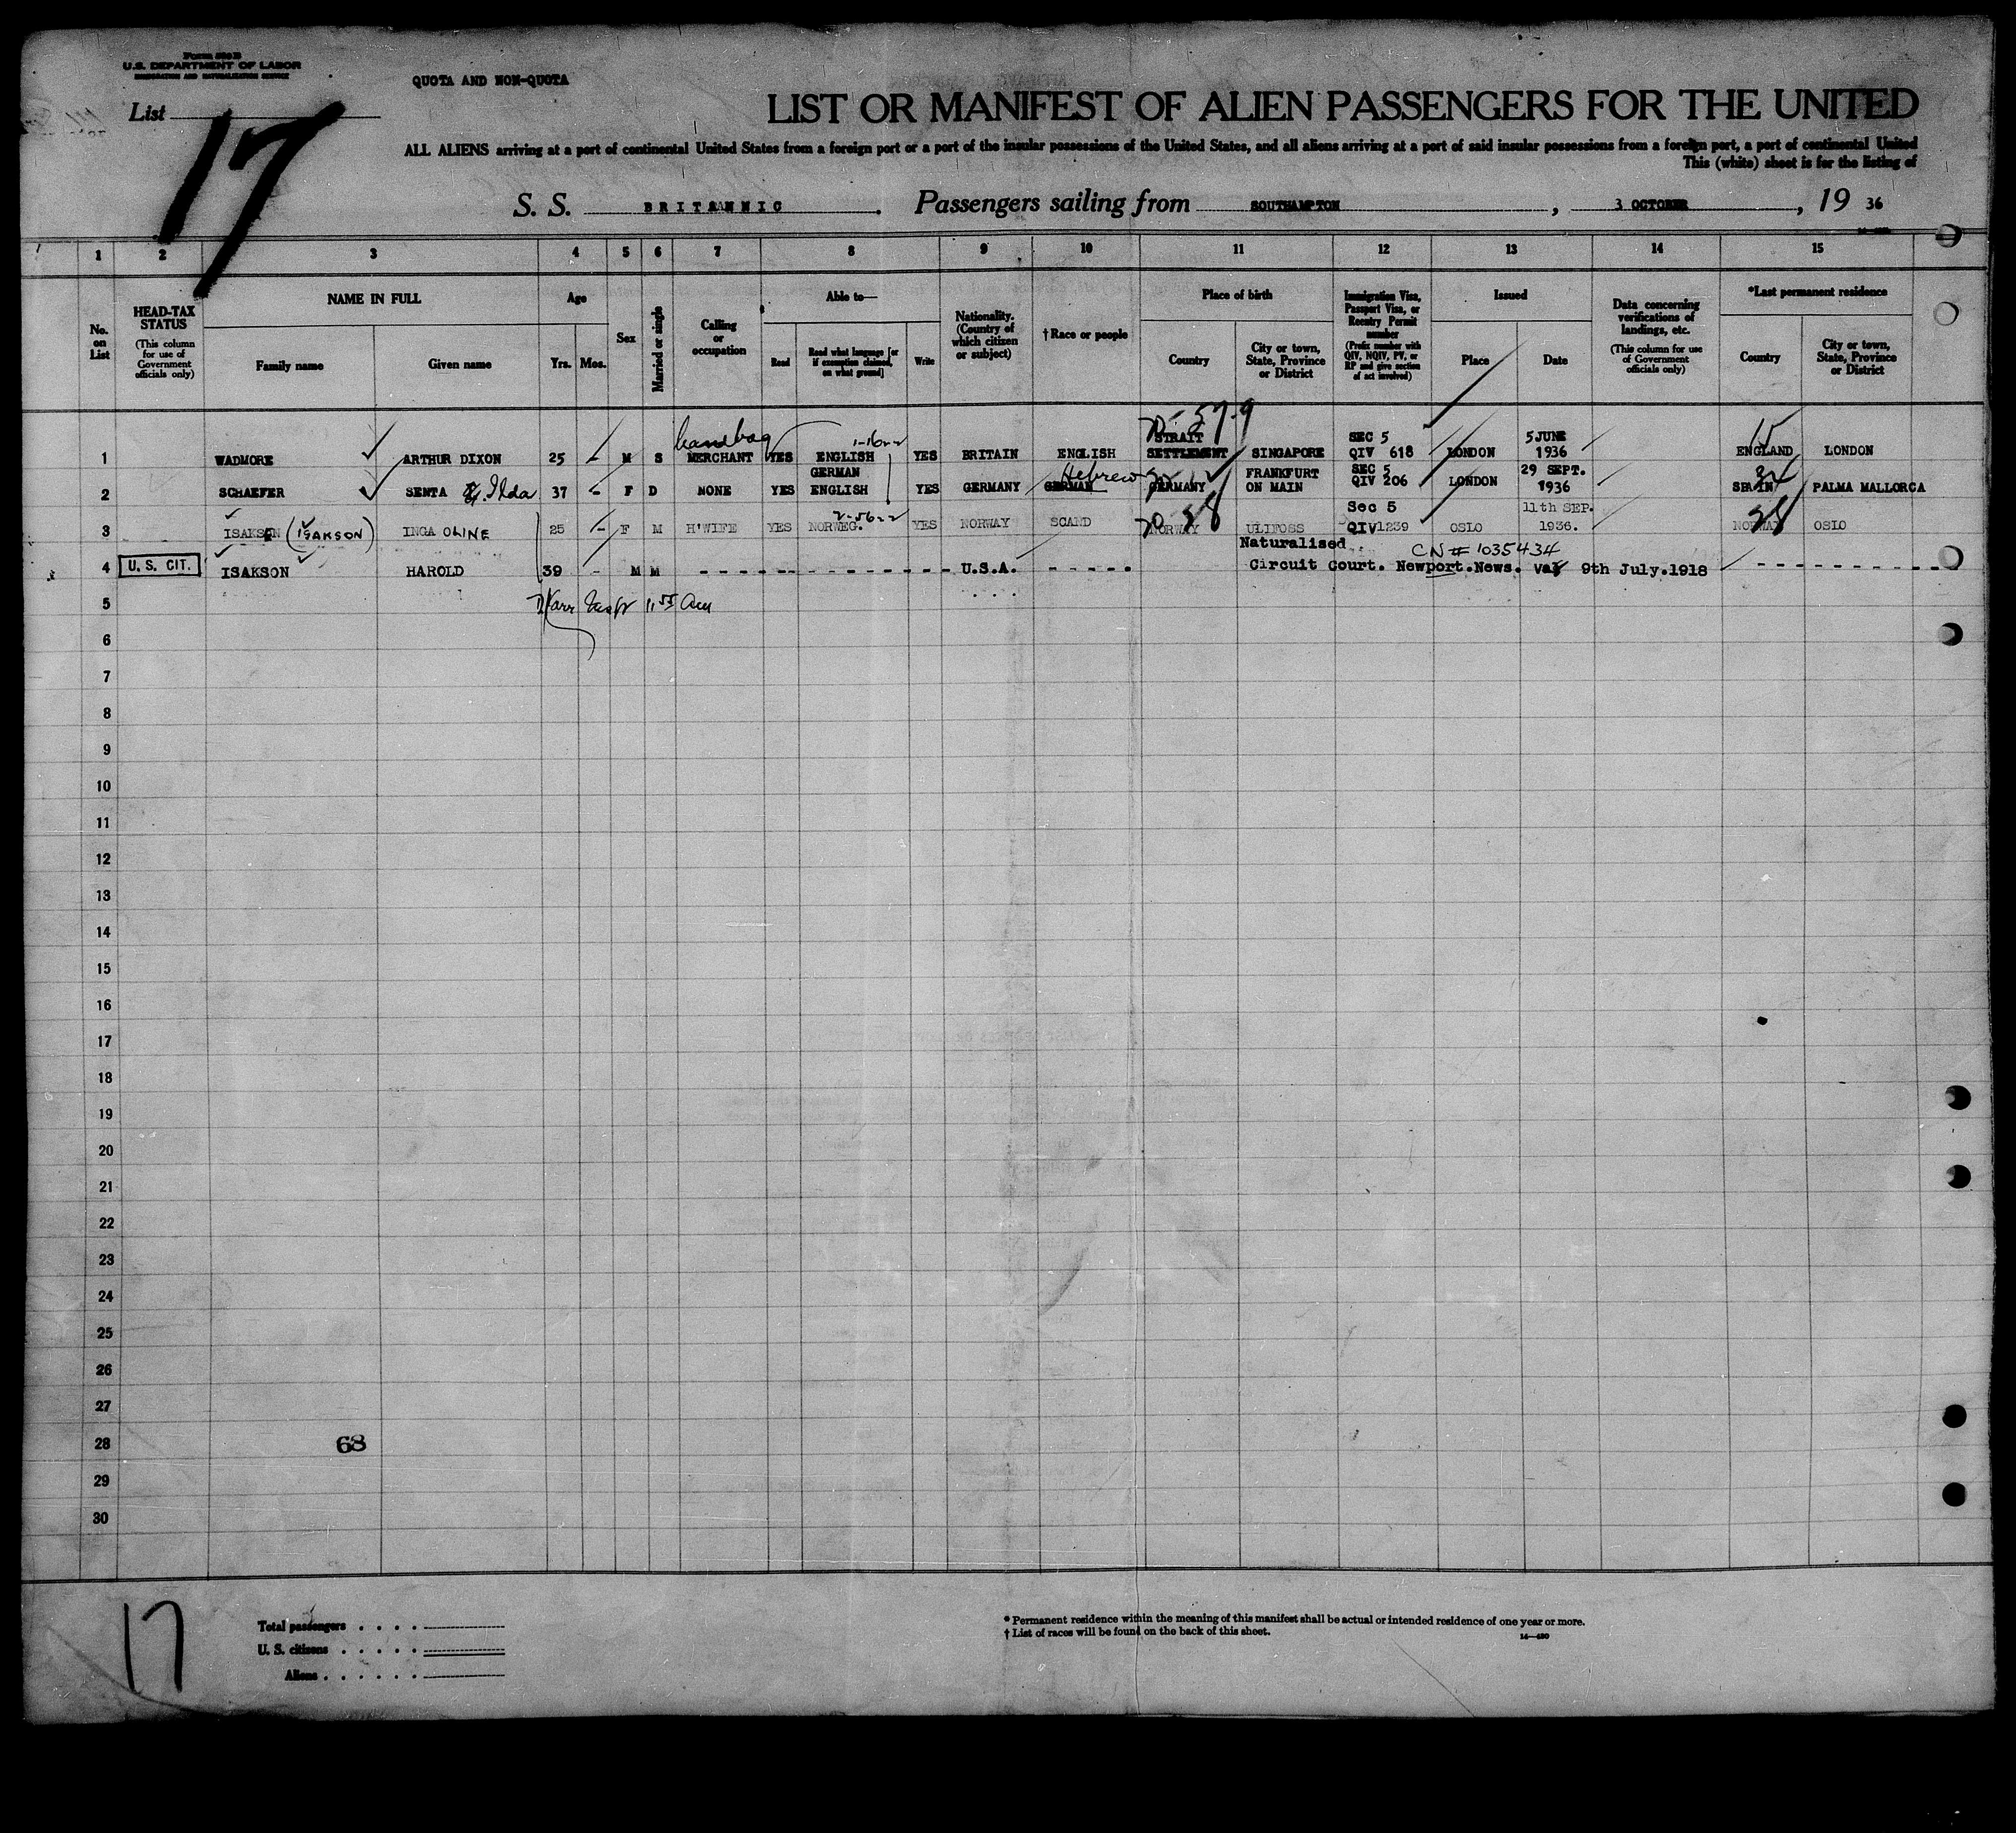 Form 500 B
U.S. DEPARTMENT OF LABOR
IMMIGRATION AND NATURALIZATION SERVICE
QUOTA AND NON-QUOTA
List 17
LIST OR MANIFEST OF ALIEN PASSENGERS FOR THE UNITED
ALL ALIENS arriving at a port of continental United States from a foreign port or a port of the insular possessions of the United States, and all aliens arriving at a port of said insular possessions from a foreign port, a port of continental United
This (white) sheet is for the listing of
S. S. BRITANNIC. Passengers sailing from SOUTHAMPTON, 3 OCTOBER, 19 36
1 2 3 4 5 6 7 8 9 10 11 12 13 14 15
No. on List
HEAD-TAX STATUS (This column for use of Government officials only)
NAME IN FULL
Family name Given name
Age
Yrs. Mos.
Sex
Married or single
Calling or occupation
Able to—
Read Read what language [or if exemption claimed, on what ground] Write
Nationality. (Country of which citizen or subject)
† Race or people
Place of birth
Country City or town, State, Province or District
Immigration Visa, Passport Visa, or Reentry Permit number (Prefix number with QIV, NQIV, PV, or RP and give section of act involved)
Issued
Place Date
Data concerning verifications of landings, etc. (This column for use of Government officials only)
*Last permanent residence
Country City or town, State, Province or District
handbag 1-16-22 70-57-9 15
1 WADMORE ARTHUR DIXON 25 - M S MERCHANT YES ENGLISH YES BRITAIN ENGLISH STRAIT SETTLEMENT SINGAPORE SEC 5 QIV 618 LONDON 5 JUNE 1936 ENGLAND LONDON
2 SCHAEFER SENTA Ilda 37 - F D NONE YES GERMAN ENGLISH YES GERMANY GERMAN Hebrew GERMANY FRANKFURT ON MAIN SEC 5 QIV 206 LONDON 29 SEPT. 1936 SPAIN PALMA MALLORCA
2-56-2
3 ISAKSEN (ISAKSON) INGA OLINE 25 - F M H'WIFE YES NORWEG. YES NORWAY SCAND NORWAY ULIFOSS Sec 5 QIV 1239 OSLO 11th SEP. 1936. NORWAY OSLO
Naturalised CN # 1035434
4 U. S. CIT. ISAKSON HAROLD 39 - M M U.S.A. Circuit Court. Newport.News. Va 9th July.1918
5
6
7
8
9
10
11
12
13
14
15
16
17
18
19
20
21
22
23
24
25
26
27
28 68
29
30
17
Total passengers
U. S. citizens
Aliens
* Permanent residence within the meaning of this manifest shall be actual or intended residence of one year or more.
† List of races will be found on the back of this sheet.